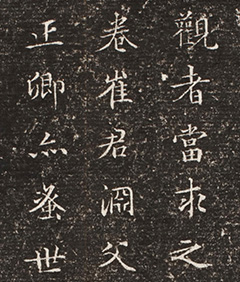 觀者當求之
卷崔君父
正卿亦蚤世